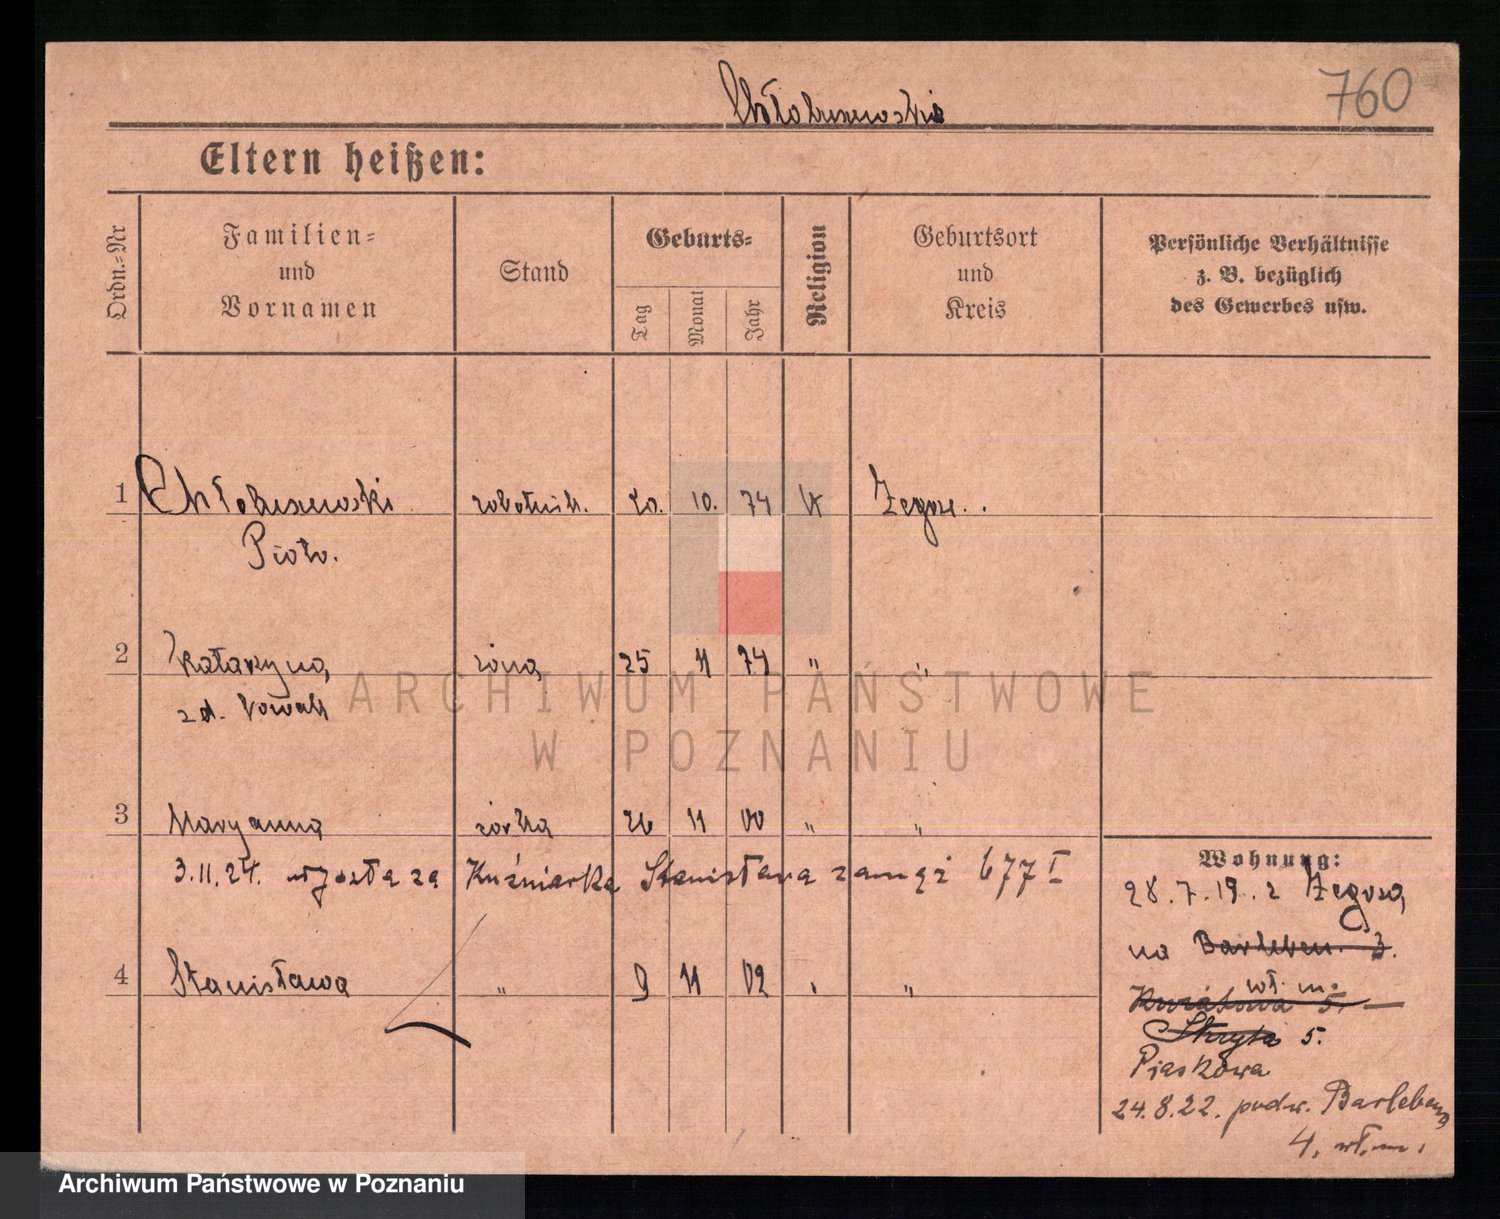 760
Eltern heißen:
Ordn.=Nr
Familien=
und
Vornamen
Stand
Geburts=
Tag
Monat
Jahr
Religion
Geburtsort
und
Kreis
Persönliche Verhältnisse
z. B. bezüglich
des Gewerbes usw.
1 robotnik. 20. 10. 74 K
Piotr.
2 Katarzyna żona 25 11 74 " "
zd. Nowak
3 Maryanna córka 26 11 00 " "
3.11.24. wyszła za Kuźniarka Stanisława zamąż 677 I
4 Stanisława " 9 11 02 " "
Wohnung:
28.7.19. z
na Barleben. 3.
wł. m.
5.
Skryta 5.
Piaskowa
24.8.22. podw. Barlebena
4. wł. m.
ARCHIWUM PAŃSTWOWE
W POZNANIU
Archiwum Państwowe w Poznaniu